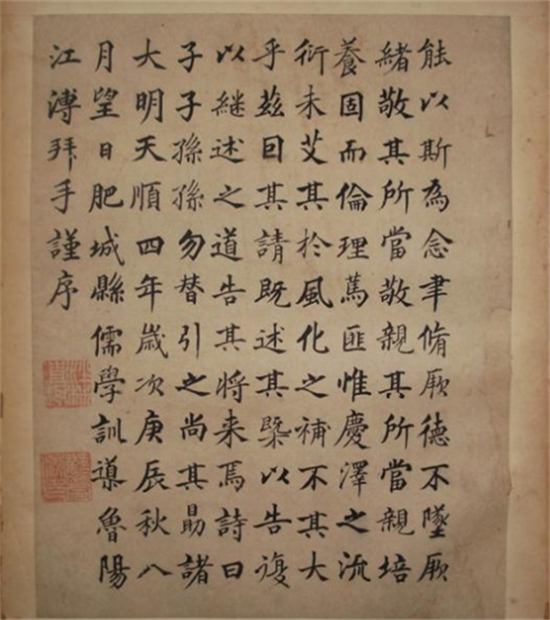 能以斯為念聿脩厥德不墜厥
緒敬其所當敬親其所當親培
養固而倫理篤匪惟慶澤之流
衍未艾其於風化之補不其大
乎茲囙其請既述其槩以告復
以繼述之道告其将来焉詩曰
子子孫孫勿替引之尚其勗諸
大明天順四年歲次庚辰秋八
月望日肥城縣儒學訓導魯陽
江溥拜手謹序